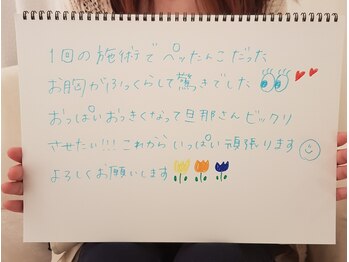 1回の施術でペッたんこだった
お胸がふっくらして驚きでした
おっぱいおっきくなって旦那さんビックリ
させたい!!!これからいっぱい頑張ります
よろしくお願いします